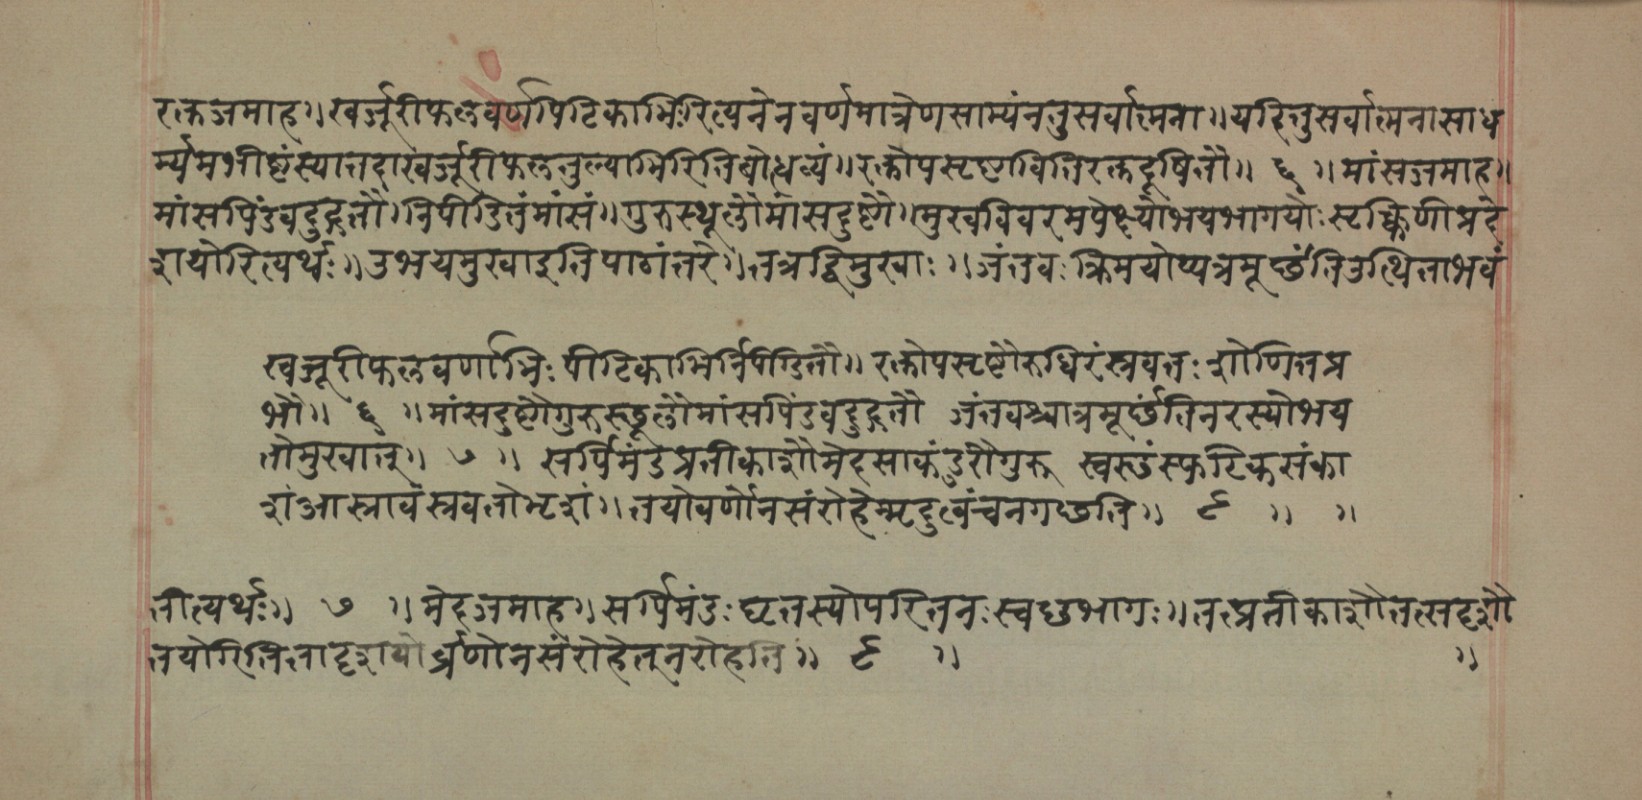 रक्तजमाह॥ खर्जूरीफलवर्णपिटिकाभिःरित्यनेनवर्णमात्रेणसाम्यंनतुसर्वात्मना॥ यदितुसर्वात्मनासाध
र्म्यमभीष्टंस्यात्तदाखर्जूरीफलतुल्याभिरितिबोधव्यं॥ रक्तोपसृष्टावितिरक्तदूषितौ॥ ६ ॥ मांसजमाह॥
मांसपिंडवदुद्गतौ॥ निपीडितंमांसं॥ गुरुस्थूलौमांसदुष्टौ॥ मुखविवरमपेक्ष्योभयभागयोः सृक्किणीप्रदे
शयोरित्यर्थः॥ उभयमुखाइतिपाठांतरे॥ तत्रद्विमुखाः॥ जंतवः क्रिमयोप्यत्रमूर्छंतिउत्थिताभवं
खर्जूरीफलवर्णाभिः पीटिकाभिर्निपीडितौ॥ रक्तोपसृष्टौरुधिरंस्त्रवतः शोणितप्र
भौ॥ ६ ॥ मांसदुष्टौगुरुस्थूलौमांसपिंडवदुद्गतौ जंतवश्चात्रमूर्छंतिनरस्योभय
तोमुखात्॥ ७ ॥ सर्पिमंडप्रतीकाशौमेदसाकंडुरौगुरू स्वछंस्फटिकसंका
शंआस्त्रावंस्त्रवतोभृशं॥ तयोवर्णोनसंरोहेन्मृदुत्वंचनगछति॥ ८ ॥ ॥
तीत्यर्थः॥ ७ ॥ मेदजमाह॥ सर्पिमंडः घृतस्योपरितनः स्वछभागः॥ तत्प्रतीकाशौतत्सदृशौ
तयोरितितादृशयोर्व्रणोनसंरोहेत्नरोहति॥ ८ ॥ ॥